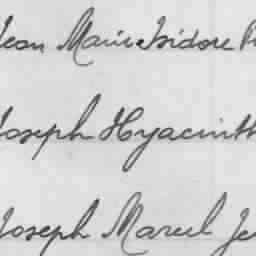 Jean Marie Isidore
Joseph Hyacinth
Joseph Marcel Je